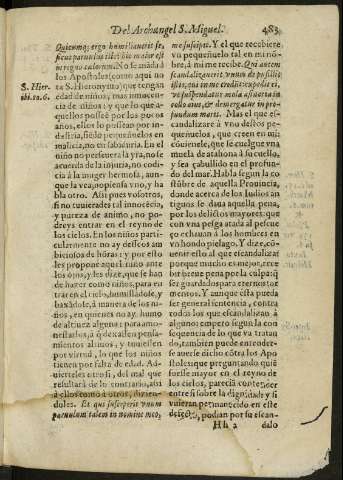 Del Archangel S. Miguel. 483
Quicumq; ergo humiliauerit se,
sicut paruulus iste: hic maior est
in regno cælorum. No se máda á
los Apostoles (como aqui no
ta S. Hieronymo) que tengan
edad de niños; mas innocécia
de niños; y que lo que a-
quellos posseé por los pocos
años, ellos lo possean por in-
dustria, siédo pequeñuelos en
malicia, no en sabiduria. En el
niño no perseuera la yra, no se
acuerda de la injuria, no codi-
cia â la muger hermosa, aun-
que la vea, propiensa vno, y ha
bla otro. Assi pues vosotros,
si no tuuierades tal innocécia,
y pureza de animo, no po-
dreys entrar en el reyno de
los cielos. En los niños parti-
cularmente no ay desseos am
biciosos de hóras: y por esto
les propone aqui vn niño ante
los ojos, y les dize, que se han
de hazer como niños, para en
trar en el cielo, humilládose, y
baxádose, á manera de los ni-
ños, en quienes no ay humo
de altiuez
nestarlos, á q dexassen pensa-
mientos altiuos; y tuuiessen
por virtud, lo que los niños
tienen por falta de edad. Ad-
uierteles otro si, del mal que
resultará de lo contrario, assi
á ellos como á otros, dizien-
doles. Et qui susceperit vnum
paruulum talem in nomine meo,
S. Hier.
ibi. to. 6.
me suscipit. Y el que recibiere
vn pequeñuelo tal en mi nó-
bre, â mi me recibe. Qui autem
scandalizauerit vnum de pusillis
istis, qui in me credút: expedit ei,
vt suspendatur mola asinaria in
collo eius, & demergatur in pro-
fundum maris. Mas el que es-
candalizare á vno destos pe-
queñuelos, que creen en mi:
cóuienele, que se cuelgue vna
muela de atahona á su cuello,
y sea çabullido en el profun-
do del mar. Habla segun la co
stúbre de aquella Prouincia,
donde acerca de los Iudios an
tiguos se daua aquella pena,
por los delictos mayores: que
con vna pesga atada al pescue
ço echauan á los hombres en
vn hondo pielago. Y dize, có-
uenirle esto al que escandalizó:
porque mucho es mejor, rece
bir breue pena por la culpa: q̃
ser guardados para eternos tor
mentos. Y aunque esta pueda
ser general sentencia, contra
todos los que escandalizan á
alguno: empero segun la con
sequencia de lo que va tratan
do, tambien puede entender-
se auerle dicho cótra los Apo
stoles: que preguntando quié
fuesse mayor en el reyno de
los cielos, parecia contender
entre si sobre la dignidad: y si
vuieran permanecido en este
podian por su escan-
H h 2 dalo